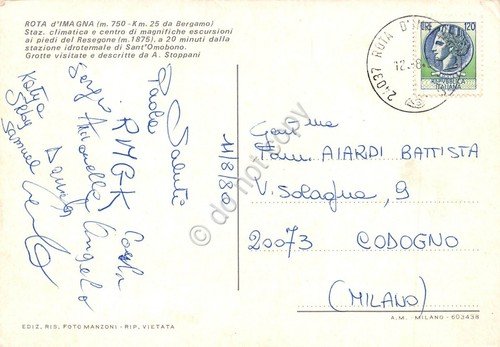 ROTA d'IMAGNA (m. 750 - Km. 25 da Bergamo)
Staz. climatica e centro di magnifiche escursioni
ai piedi del Resegone (m. 1875), a 20 minuti dalla
stazione idrotermale di Sant'Omobono.
Grotte visitate e descritte da A. Stoppani
24037 ROTA D'
12.-8.
120
REPUBBLICA
ITALIANA
Saluti
Paola
Sergio Antonella Angelo
Katya
Samuel
11/8/80
Fam. AIARDI BATTISTA
V. Solagna, 9
20073 CODOGNO
(MILANO)
do not copy
EDIZ. RIS. FOTO MANZONI - RIP. VIETATA
A.M. MILANO - 603438